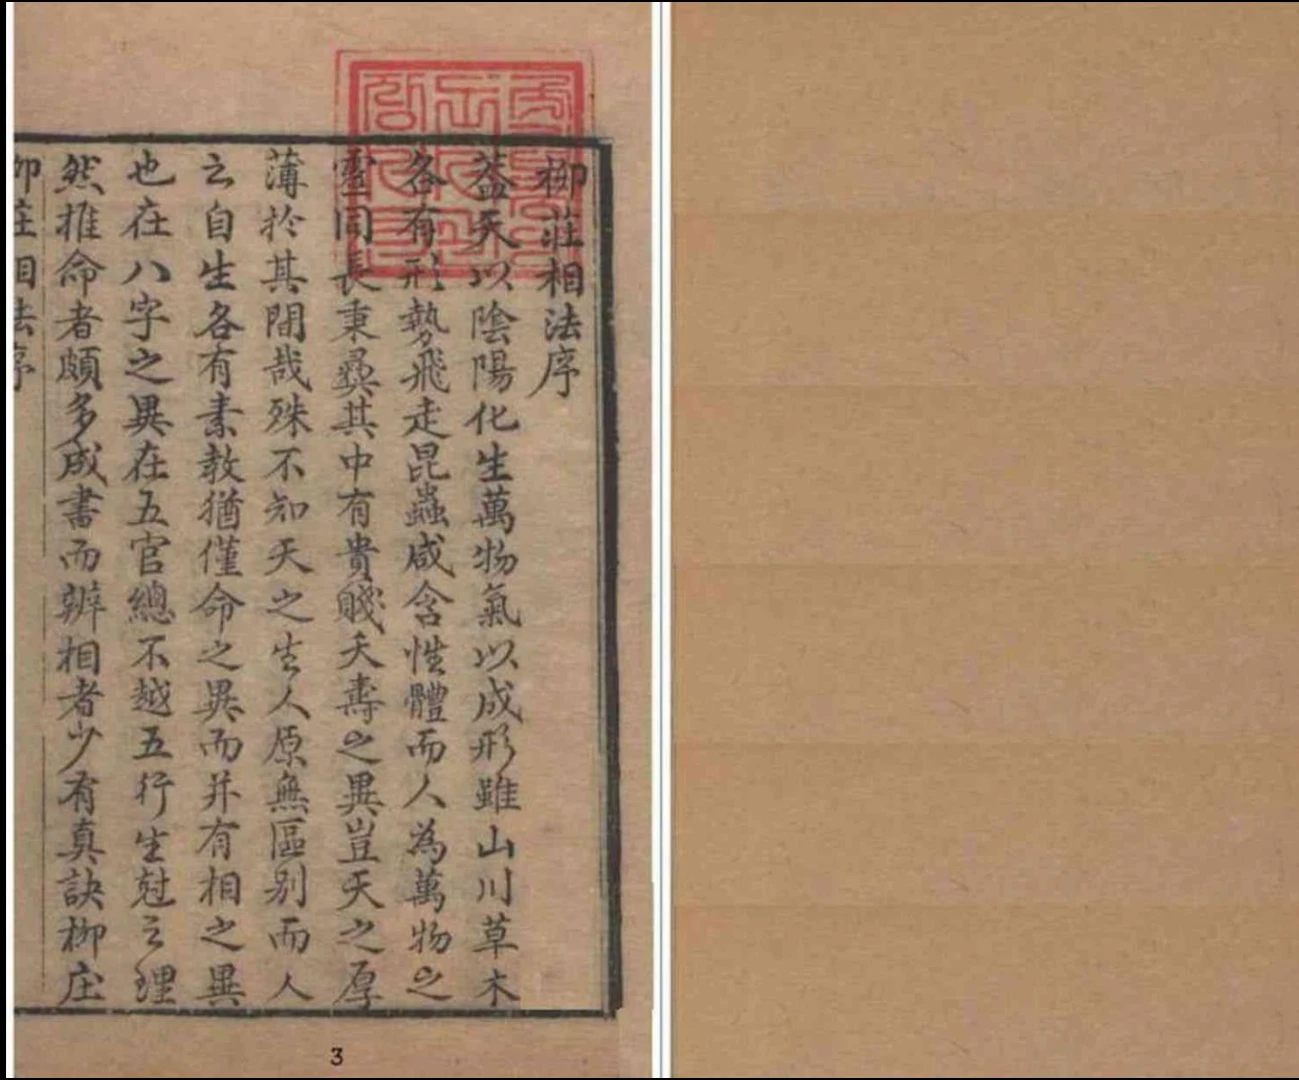 柳莊相法序
葢天以陰陽化生萬物氣以成形雖山川草木
各有形勢飛走昆蟲咸含性體而人為萬物之
靈同長秉彝其中有貴賤夭壽之異豈天之厚
薄於其間哉殊不知天之生人原無區别而人
之自生各有素教猶僅命之異而并有相之異
也在八字之異在五官總不越五行生尅之理
然推命者頗多成書而辦相者少有真訣柳庄
柳庄相法序
3